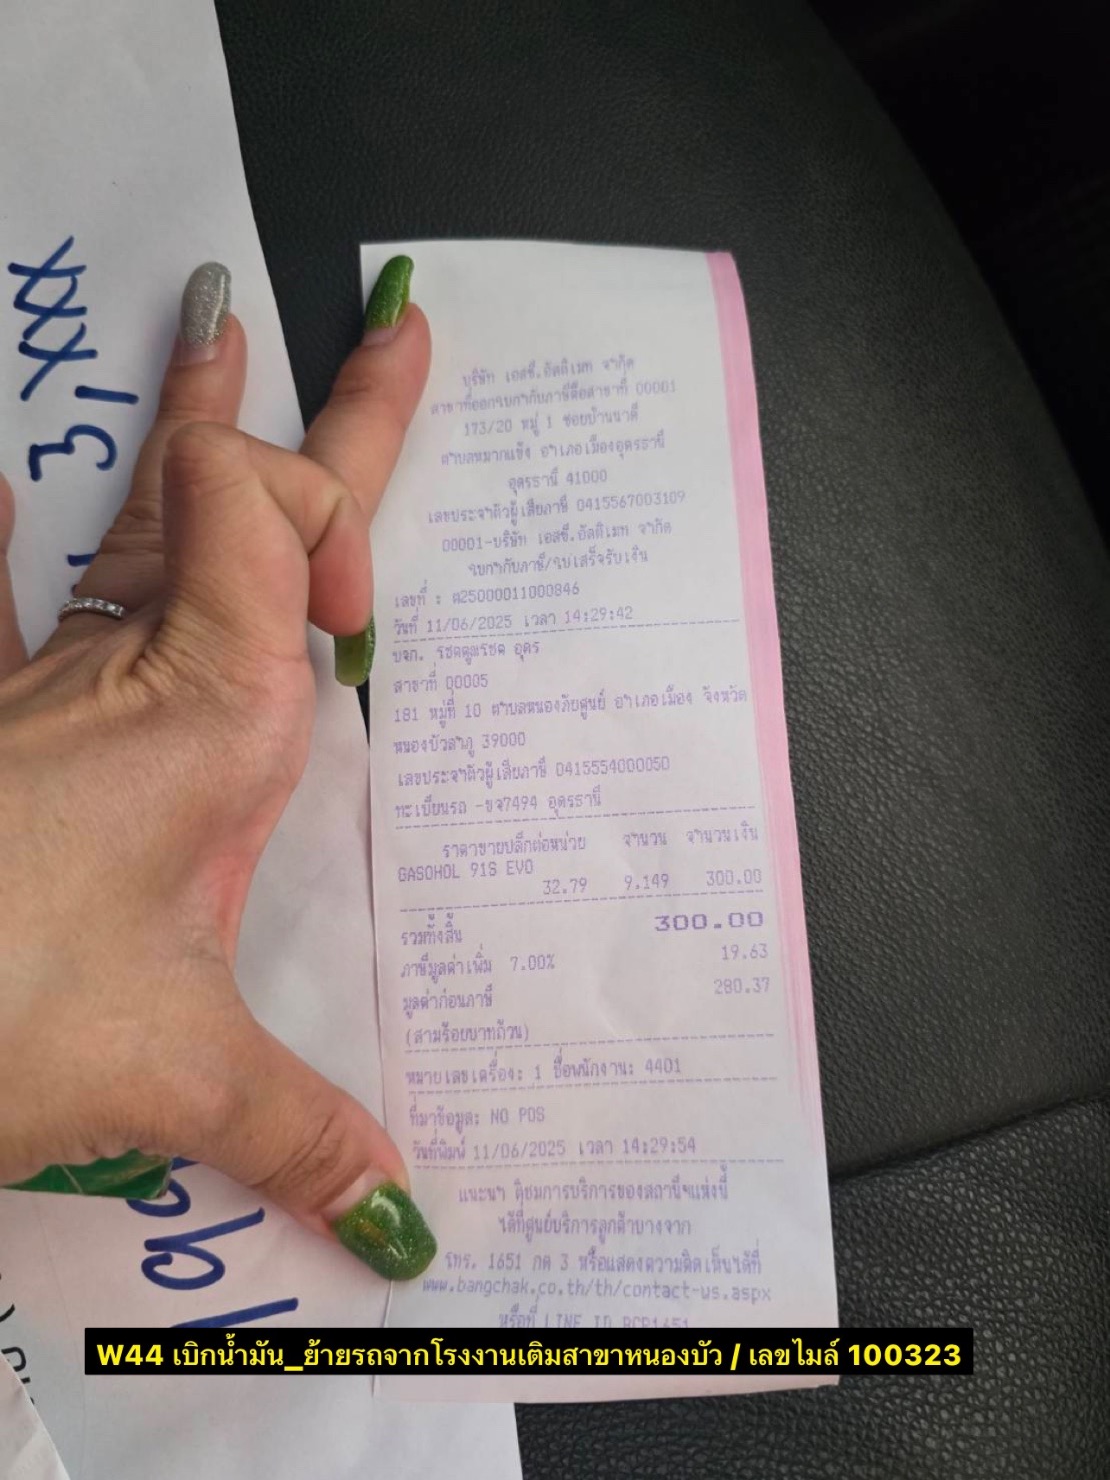 3,xxx
บริษัท เอสซี.อัลติเมท จำกัด
สาขาที่ออกใบกำกับภาษีคือสาขาที่ 00001
173/20 หมู่ 1 ซอยบ้านนาดี
ตำบลหมากแข้ง อำเภอเมืองอุดรธานี
อุดรธานี 41000
เลขประจำตัวผู้เสียภาษี 0415567003109
00001-บริษัท เอสซี.อัลติเมท จำกัด
ใบกำกับภาษี/ใบเสร็จรับเงิน
เลขที่ : ค25000011000846
วันที่ 11/06/2025 เวลา 14:29:42
บจก. รชตดูณรชต อุดร
สาขาที่ 00005
181 หมู่ที่ 10 ตำบลหนองภัยศูนย์ อำเภอเมือง จังหวัด
หนองบัวลำภู 39000
เลขประจำตัวผู้เสียภาษี 0415554000050
ทะเบียนรถ -ขจ7494 อุดรธานี
ราคาขายปลีกต่อหน่วย จำนวน จำนวนเงิน
GASOHOL 91S EVO
32.79 9.149 300.00
รวมทั้งสิ้น 300.00
ภาษีมูลค่าเพิ่ม 7.00% 19.63
มูลค่าก่อนภาษี 280.37
(สามร้อยบาทถ้วน)
หมายเลขเครื่อง: 1 ชื่อพนักงาน: 4401
ที่มาข้อมูล: NO POS
วันที่พิมพ์ 11/06/2025 เวลา 14:29:54
แนะนำ ติชมการบริการของสถานีฯแห่งนี้
ได้ที่ศูนย์บริการลูกค้าบางจาก
โทร. 1651 กด 3 หรือแสดงความคิดเห็นได้ที่
www.bangchak.co.th/th/contact-us.aspx
หรือที่ LINE ID BCP1651
W44 เบิกน้ำมัน_ย้ายรถจากโรงงานเติมสาขาหนองบัว / เลขไมล์ 100323